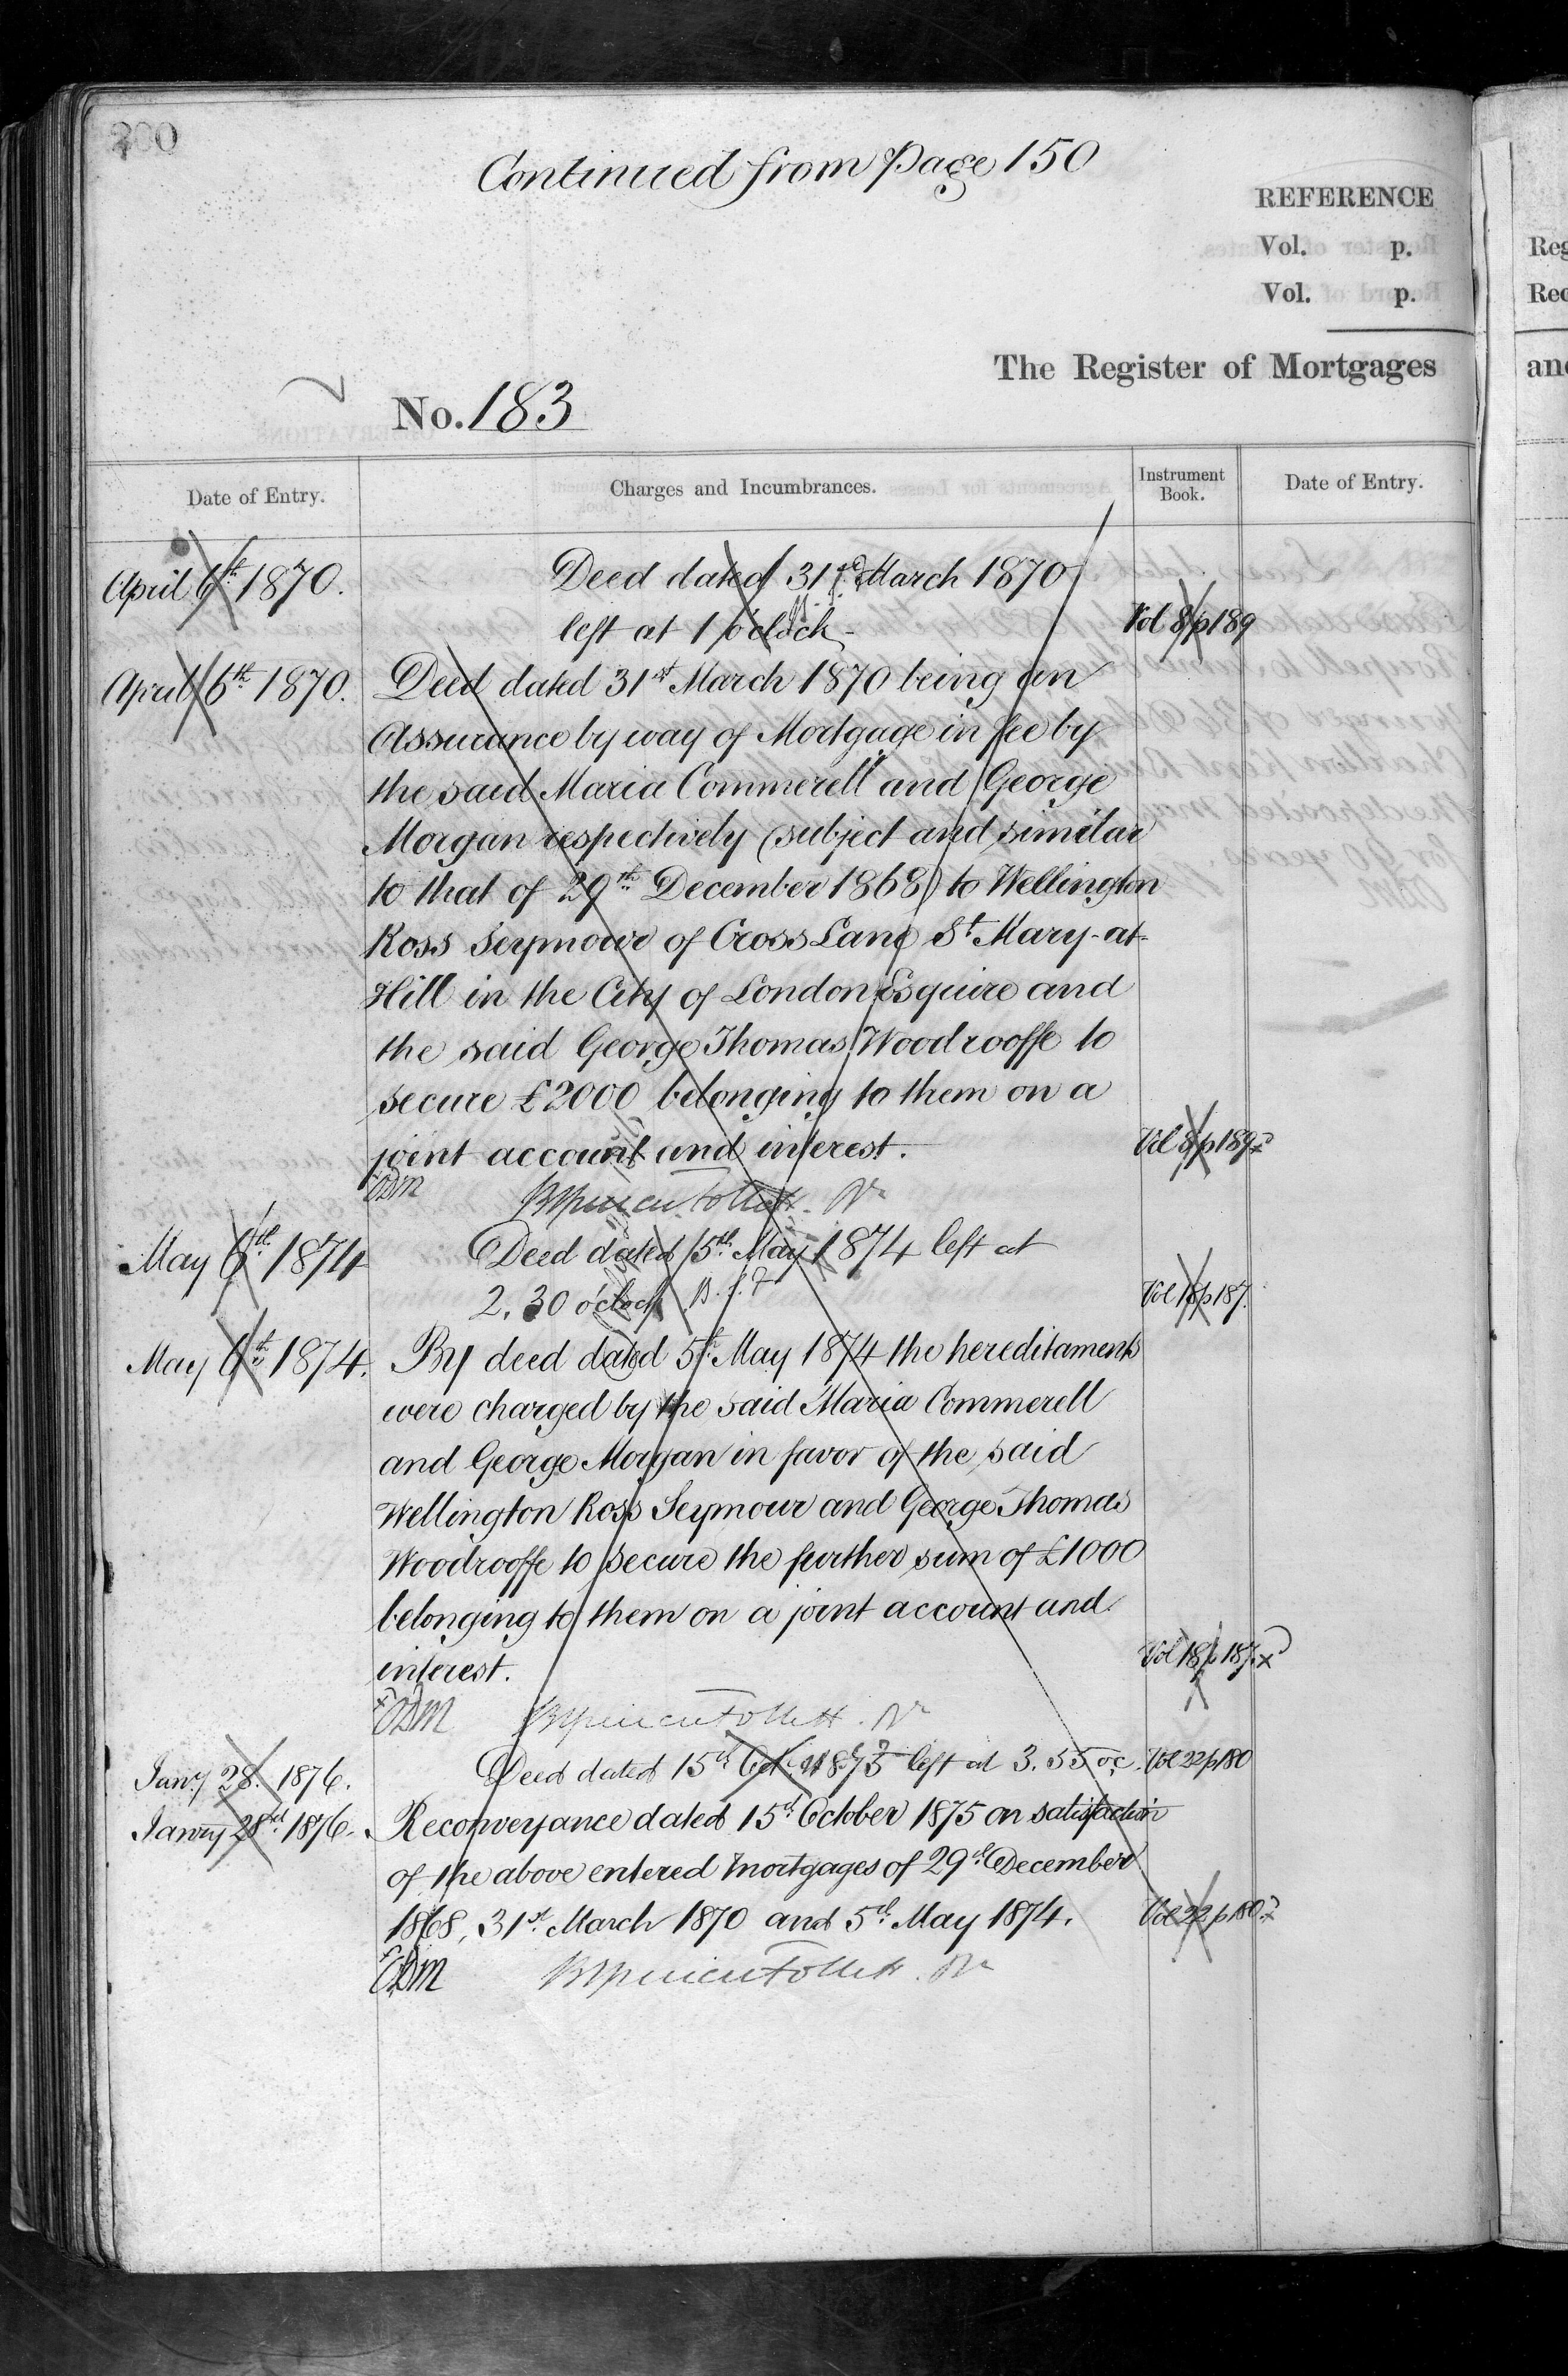 200
Continued from Page 150
REFERENCE
Vol. p.
Vol. p.
The Register of Mortgages
No. 183
Date of Entry.
Charges and Incumbrances.
Instrument Book.
Date of Entry.
April 6th 1870.
Deed dated 31st March 1870
left at 1 o'clock
Vol 8 p 189
April 6th 1870.
Deed dated 31st March 1870 being an
Assurance by way of Mortgage in fee by
the said Maria Commerell and George
Morgan respectively (subject and similar
to that of 29th December 1868) to Wellington
Ross Seymour of Cross Lane St Mary-at-
Hill in the City of London Esquire and
the said George Thomas Woodrooffe to
secure £2000 belonging to them on a
joint account and interest.
Vol 8 p 189
ODM
May 6th 1874
Deed dated 5th May 1874 left at
2.30 o'clock
Vol 18 p 187.
May 6th 1874.
By deed dated 5th May 1874 the hereditaments
were charged by the said Maria Commerell
and George Morgan in favor of the said
Wellington Ross Seymour and George Thomas
Woodrooffe to secure the further sum of £1000
belonging to them on a joint account and
interest.
Vol 18 p 187
ODM
Janry 28. 1876.
Deed dated 15th Oct. 1875 left at 3.55 oc.
Vol 22 p 180
Janry 28th 1876.
Reconveyance dated 15th October 1875 on satisfaction
of the above entered Mortgages of 29th December
1868, 31st March 1870 and 5th May 1874.
Vol 22 p 180
ODM
Reg
Rec
and